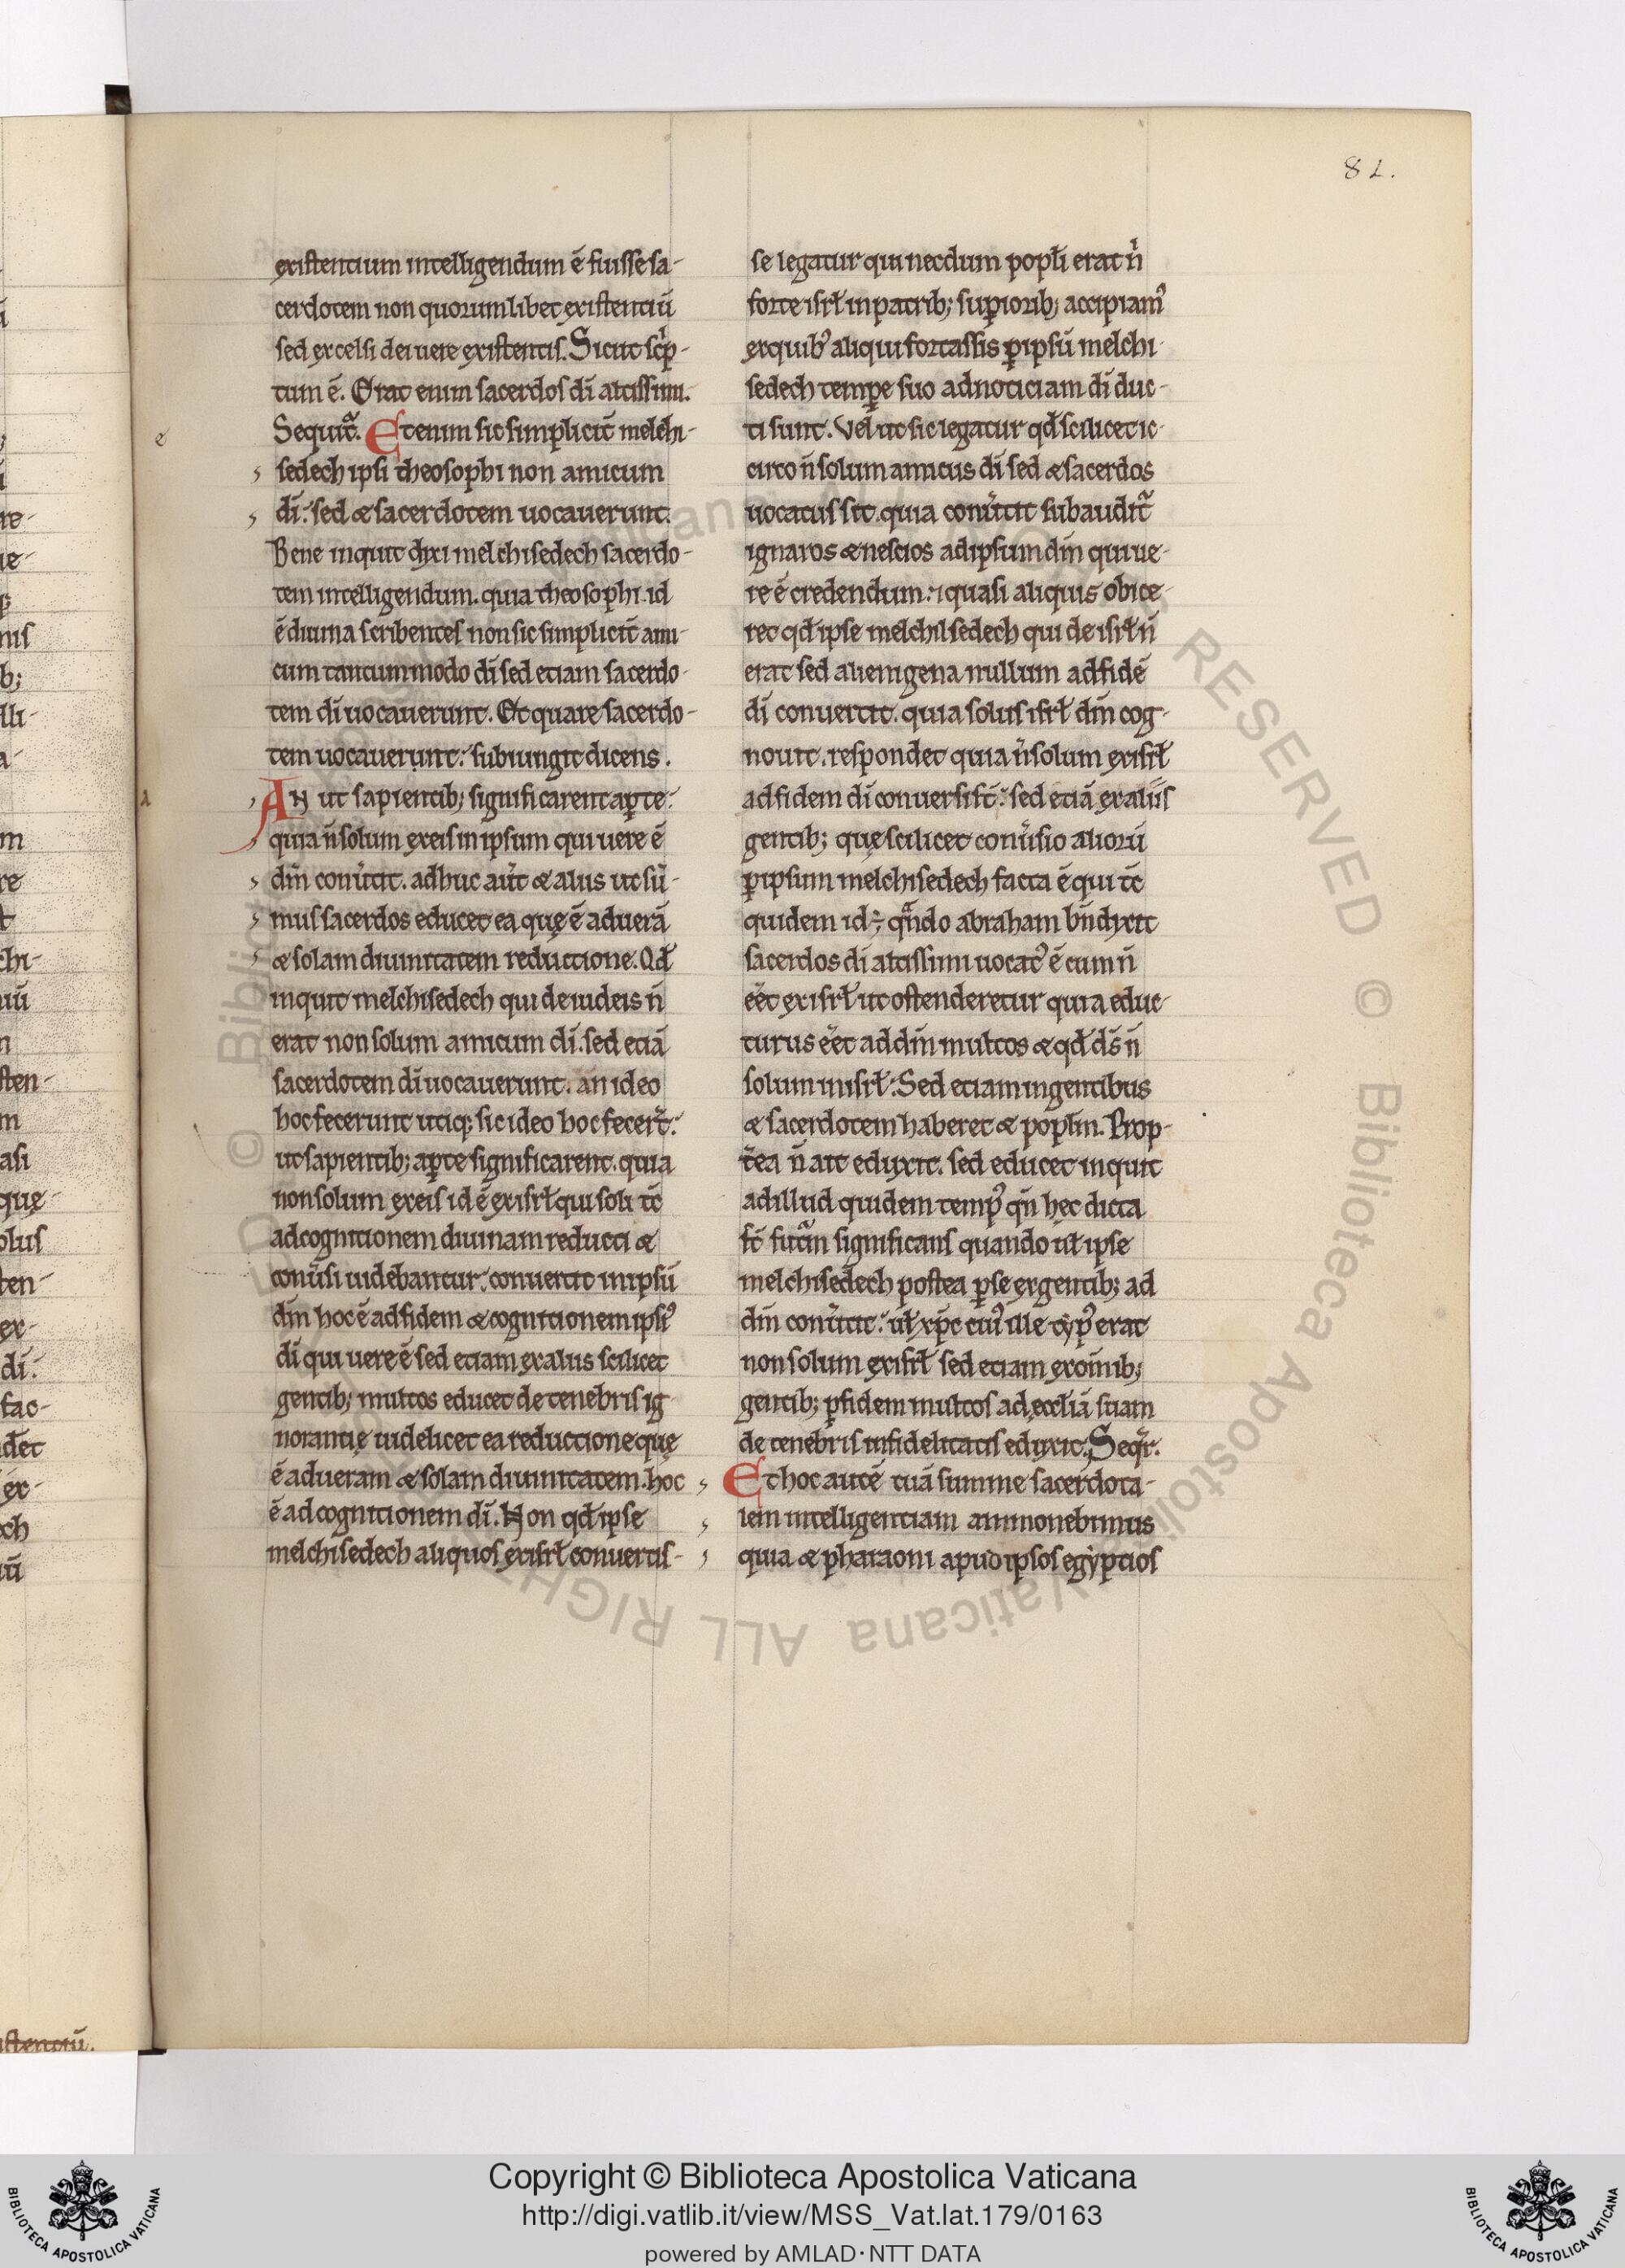 82.
existentium intellịgendum ē fuisse sa-
cerdotem non quorumlibet existentiū
sed excelsi dei uere existentis. Sicut sc̄p-
tum ē. Erat enim sacerdos dī altissimi.
Sequit᷑. Etenim sic simplicit̄ melchi-
sedech ipsi theosophi non amicum
dī: sed & sacerdotem uocauerunt.
Bene inquit dixi melchisedech sacerdo-
tem intelligendum. quia theosophi. id
ē diuina scribentes non sic simplicit̄ ami-
cum tantummodo dī sed etiam sacerdo-
tem dī uocauerunt. Et quare sacerdo-
tem uocauerunt: subiungit dicens.
AN ut sapientib; significarent aꝑte:
quia n̄ solum ex eis in ipsum qui uere ē
dm̄ conu̾tit. adhuc aut̄ & alius ut sū-
mus sacerdos educet ea quę ē ad uerā
& solam diuinitatem reductione. Qđ
inquit melchisedech qui de iudeis n̄
erat non solum amicum dī. sed etiā
sacerdotem dī uocauerunt. an ideo
hoc fecerunt utiq; sic ideo hoc fecer̄t:
ut sapientib; aꝑte significarent. quia
non solum ex eis id ē ex isrł qui soli tc̄
ad cognitionem diuinam reducti &
conu̾si uidebantur: conuertit in ipsū
dm̄ hoc ē ad fidem & cognitionem ipsiꝰ
dī qui uere ē sed etiam ex aliis scilicet
gentib; multos educet de tenebris ig-
norantię uidelicet ea reductione quę
ē ad ueram & solam diuinitatem. hoc
ē ad cognitionem dī. Non qđ ipse
melchisedech aliquos ex isrł conuertis-
se legatur qui necdum popłi erat n̄
forte isrł in patrib; suꝑiorib; accipiamꝰ
ex quibꝰ aliqui fortassis ꝑ ipsū melchi-
sedech tempe suo ad noticiam dī duc-
ti sunt. Vel ut sic legatur qđ scilicet ic-
circo n̄ solum amicus dī sed & sacerdos
uocatus sit. quia conu̾tit subaudit᷑
ignaros & nescios ad ipsum dm̄ qui ue-
re ē credendum: ⁊ quasi aliquis obice-
ret qđ ipse melchisedech qui de isrł n̄
erat sed alienigena nullum ad fidē
dī conuertit. quia solus isrł dm̄ cog-
nouit. respondet quia n̄ solum ex isrł
ad fidem dī conuersi st̄: sed etiā ex aliis
gentib; quę scilicet conu̾sio aliorū
ꝑ ipsum melchisedech facta ē qui tc̄
quidem id÷ qn̄do abraham bn̄dixit
sacerdos dī altissimi uocatꝰ ē cum n̄
eēt ex isrł ut ostenderetur quia educ-
turus eēt ad dm̄ multos & qđ ds̄ n̄
solum in isrł: Sed etiam in gentibus
& sacerdotem haberet & poplm̄. Prop-
t̄ea n̄ ait eduxit. sed educet inquit
ad illud quidem tempꝰ qn̄ hęc dicta
st̄ futūm significans quando uł ipse
melchisedech postea ꝑ se ex gentib; ad
dm̄ conu̾tit: uł xp̄c cuiꝰ ille typꝰ erat
non solum ex isrł sed etiam ex om̄ib;
gentib; ꝑ fidem multos ad ęccłiā suam
de tenebris infidelitatis eduxit. Seqr̄.
Et hoc autē tuā summe sacerdota-
lem intelligentiam ammonebimus
quia & pharaoni apud ipsos egyptios
Copyright © Biblioteca Apostolica Vaticana
http://digi.vatlib.it/view/MSS_Vat.lat.179/0163
powered by AMLAD·NTT DATA